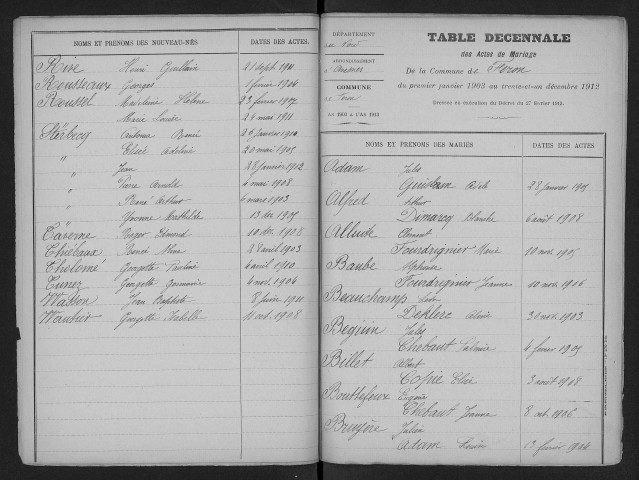 NOMS ET PRENOMS DES NOUVEAU-NÉS DATES DES ACTES.
Rive Henri Guillain 21 sept. 1911
Rousseaux Georges 1 février 1904
Roussel Madeleine Hélène 23 février 1907
Marie Louise 21 mai 1911
Sterbecq Antoine René 26 janvier 1910
" Elisée Adeline 20 mai 1905
" Jean 28 janvier 1912
" Pierre Arnold 4 mai 1908
" René Arthur 4 mars 1903
" Yvonne Mathilde 13 déc. 1905
Taverne Roger Edmond 10 déc. 1908
Thiébaux René 22 avril 1903
Tholomé Georgette Pauline 6 avril 1910
Tunez Georgette Germaine 4 nov. 1904
Wasson Jean Baptiste 8 juin 1911
Wautier Georgette Isabelle 11 oct. 1908
DÉPARTEMENT
du Nord
ARRONDISSEMENT
d'Avesnes
COMMUNE
de Féron
AN 1903 A L'AN 1912
TABLE DECENNALE
des Actes de Mariage
De la Commune de Féron
du premier janvier 1903 au trente-et-un décembre 1912
Dressée en exécution du Décret du 27 février 1912.
NOMS ET PRENOMS DES MARIÉS DATES DES ACTES
Adam Jules
Guislain Adèle 28 janvier 1905
Alfred Arthur
Dimarcq Blanche 6 août 1908
Alluste Clément
Fourdrignier Marie 10 nov. 1905
Baube Alphonse
Fourdrignier Jeanne 10 nov. 1906
Beauchamp Léon
Deklerc Alice 30 nov. 1903
Beguin Jules
Thebaut Palmire 4 février 1905
Billet Albert
Copie Elise 3 août 1908
Bouttefeux Eugène
Thebaut Jeanne 8 oct. 1906
Bruyère Julien
Adam Louise 13 février 1904